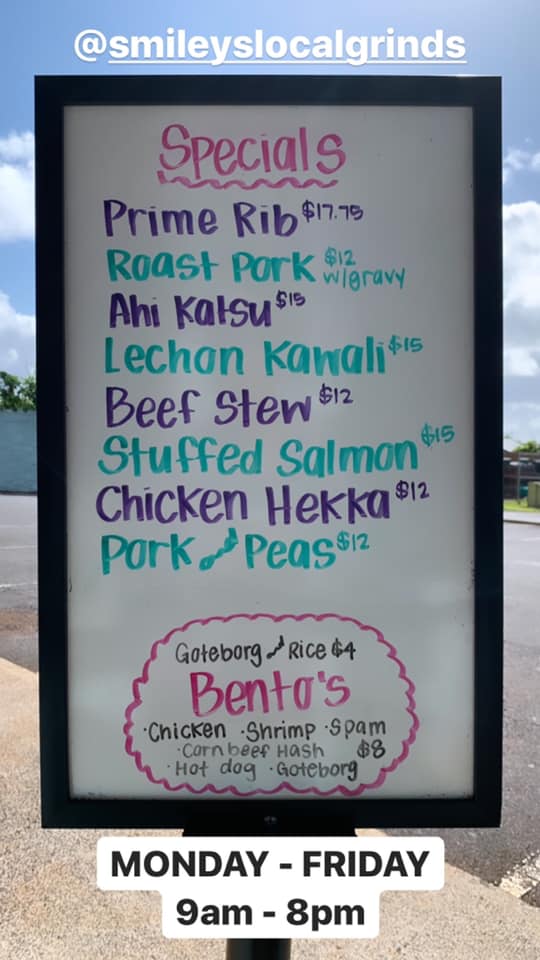 @smileyslocalgrinds
Specials
Prime Rib $17.75
Roast Pork $12 w/gravy
Ahi Katsu $15
Lechon Kawali $15
Beef Stew $12
Stuffed Salmon $15
Chicken Hekka $12
Pork & Peas $12
Goteborg & Rice $4
Bento's
·Chicken ·Shrimp ·Spam
·Corn beef Hash $8
·Hot dog ·Goteborg
MONDAY - FRIDAY
9am - 8pm